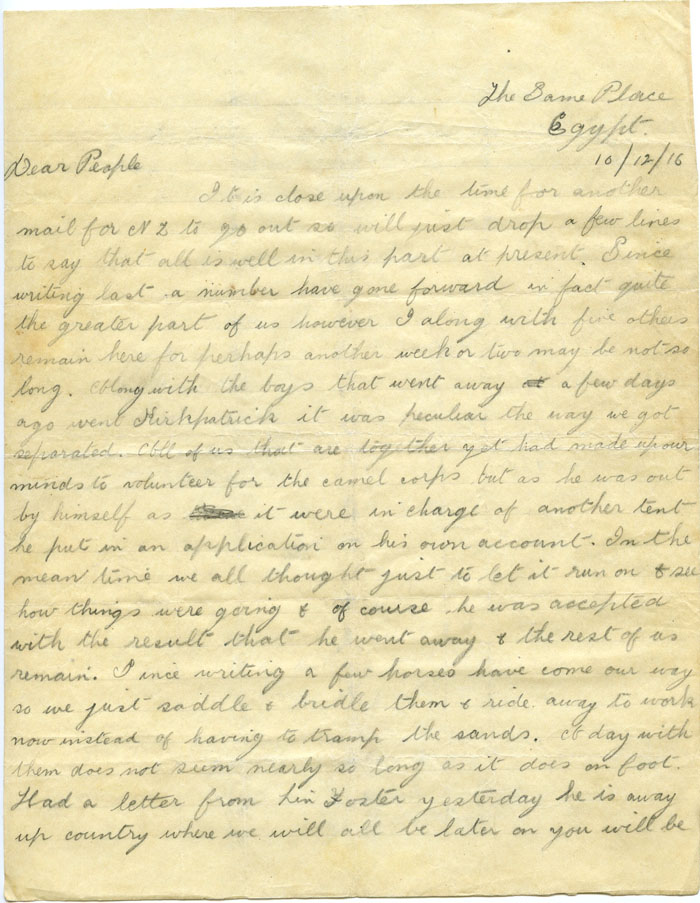 The Same Place
Egypt.
10/12/16
Dear People
It is close upon the time for another
mail for N Z to go out so will just drop a few lines
to say that all is well in this part at present. Since
writing last a number have gone forward in fact quite
the greater part of us however I along with five others
remain here for perhaps another week or two may be not so
long. Along with the boys that went away a few days
ago went Kirkpatrick it was peculiar the way we got
separated. All of us that are together yet had made up our
minds to volunteer for the camel corps but as he was out
by himself as it were in charge of another tent
he put in an application on his own account. In the
mean time we all thought just to let it run on & see
how things were going & of course he was accepted
with the result that he went away & the rest of us
remain. Since writing a few horses have come our way
so we just saddle & bridle them & ride away to work
now instead of having to tramp the sands. A day with
them does not seem nearly so long as it does on foot.
Had a letter from Foster yesterday he is away
up country where we will all be later on you will be